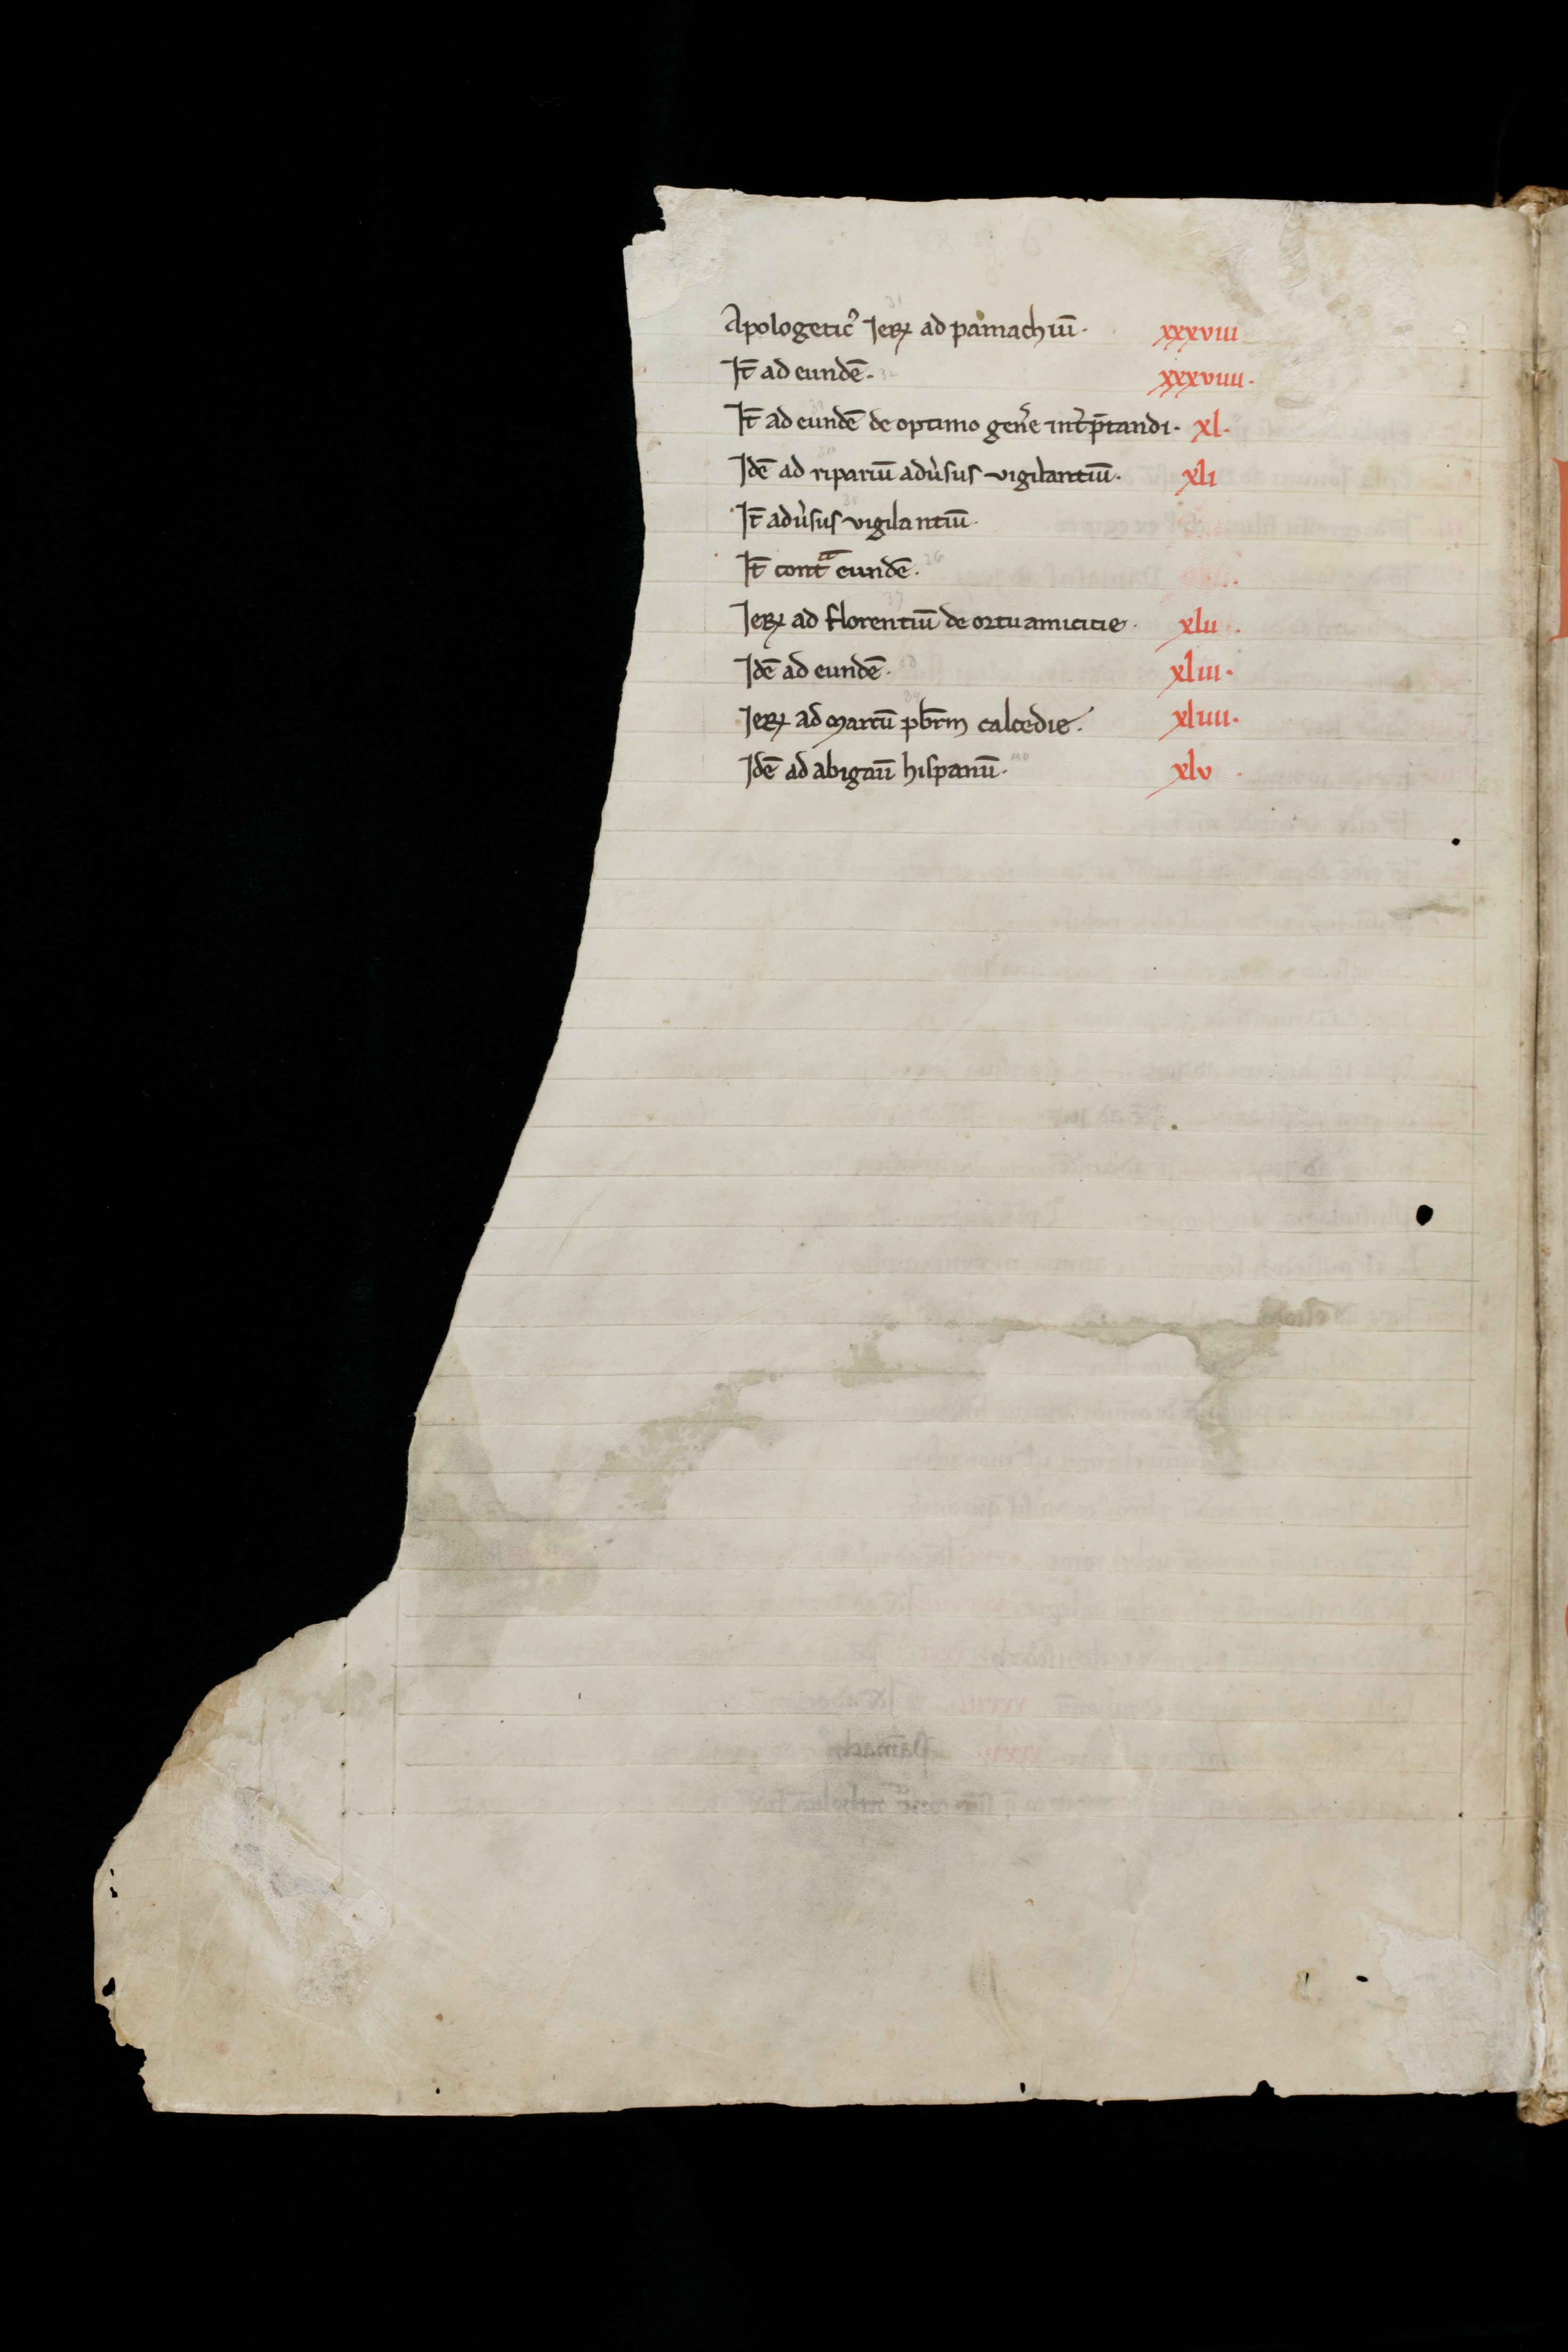 Apologetic᷒ Ieꝝ ad pamachiū· xxxviii
It̄ ad eundē· xxxviiii·
It̄ ad eundē de optimo gen̄e int̄p̄tandi· xl·
Idē ad ripariū adu̓sus vigilantiū· xli
It̄ adu̓sus vigilantiū·
It̄ contᷓ eundē·
Ieꝝ ad florentiū de ortu amicicie· xlii·
Idē ad eundē· xliii·
Ieꝝ ad marcū pb̄rm calcedie· xliiii·
Idē ad abigaū hispanū· xlv·